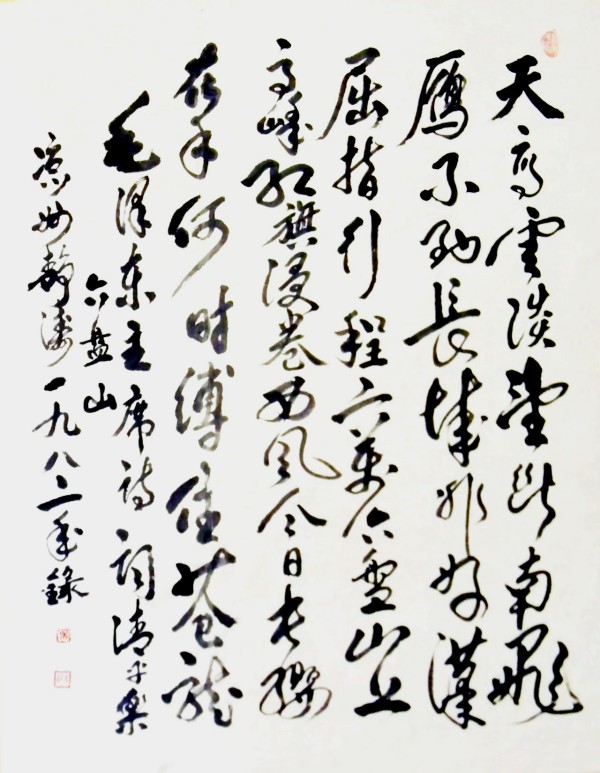 天高雲淡望斷南飛
鴈不到長城非好漢
屈指行程二萬六盤山上
高峰紅旗漫卷西風今日長纓
在手何時縛住蒼龍
毛澤東主席詩詞清平樂
六盤山
州靜濤一九八二年錄